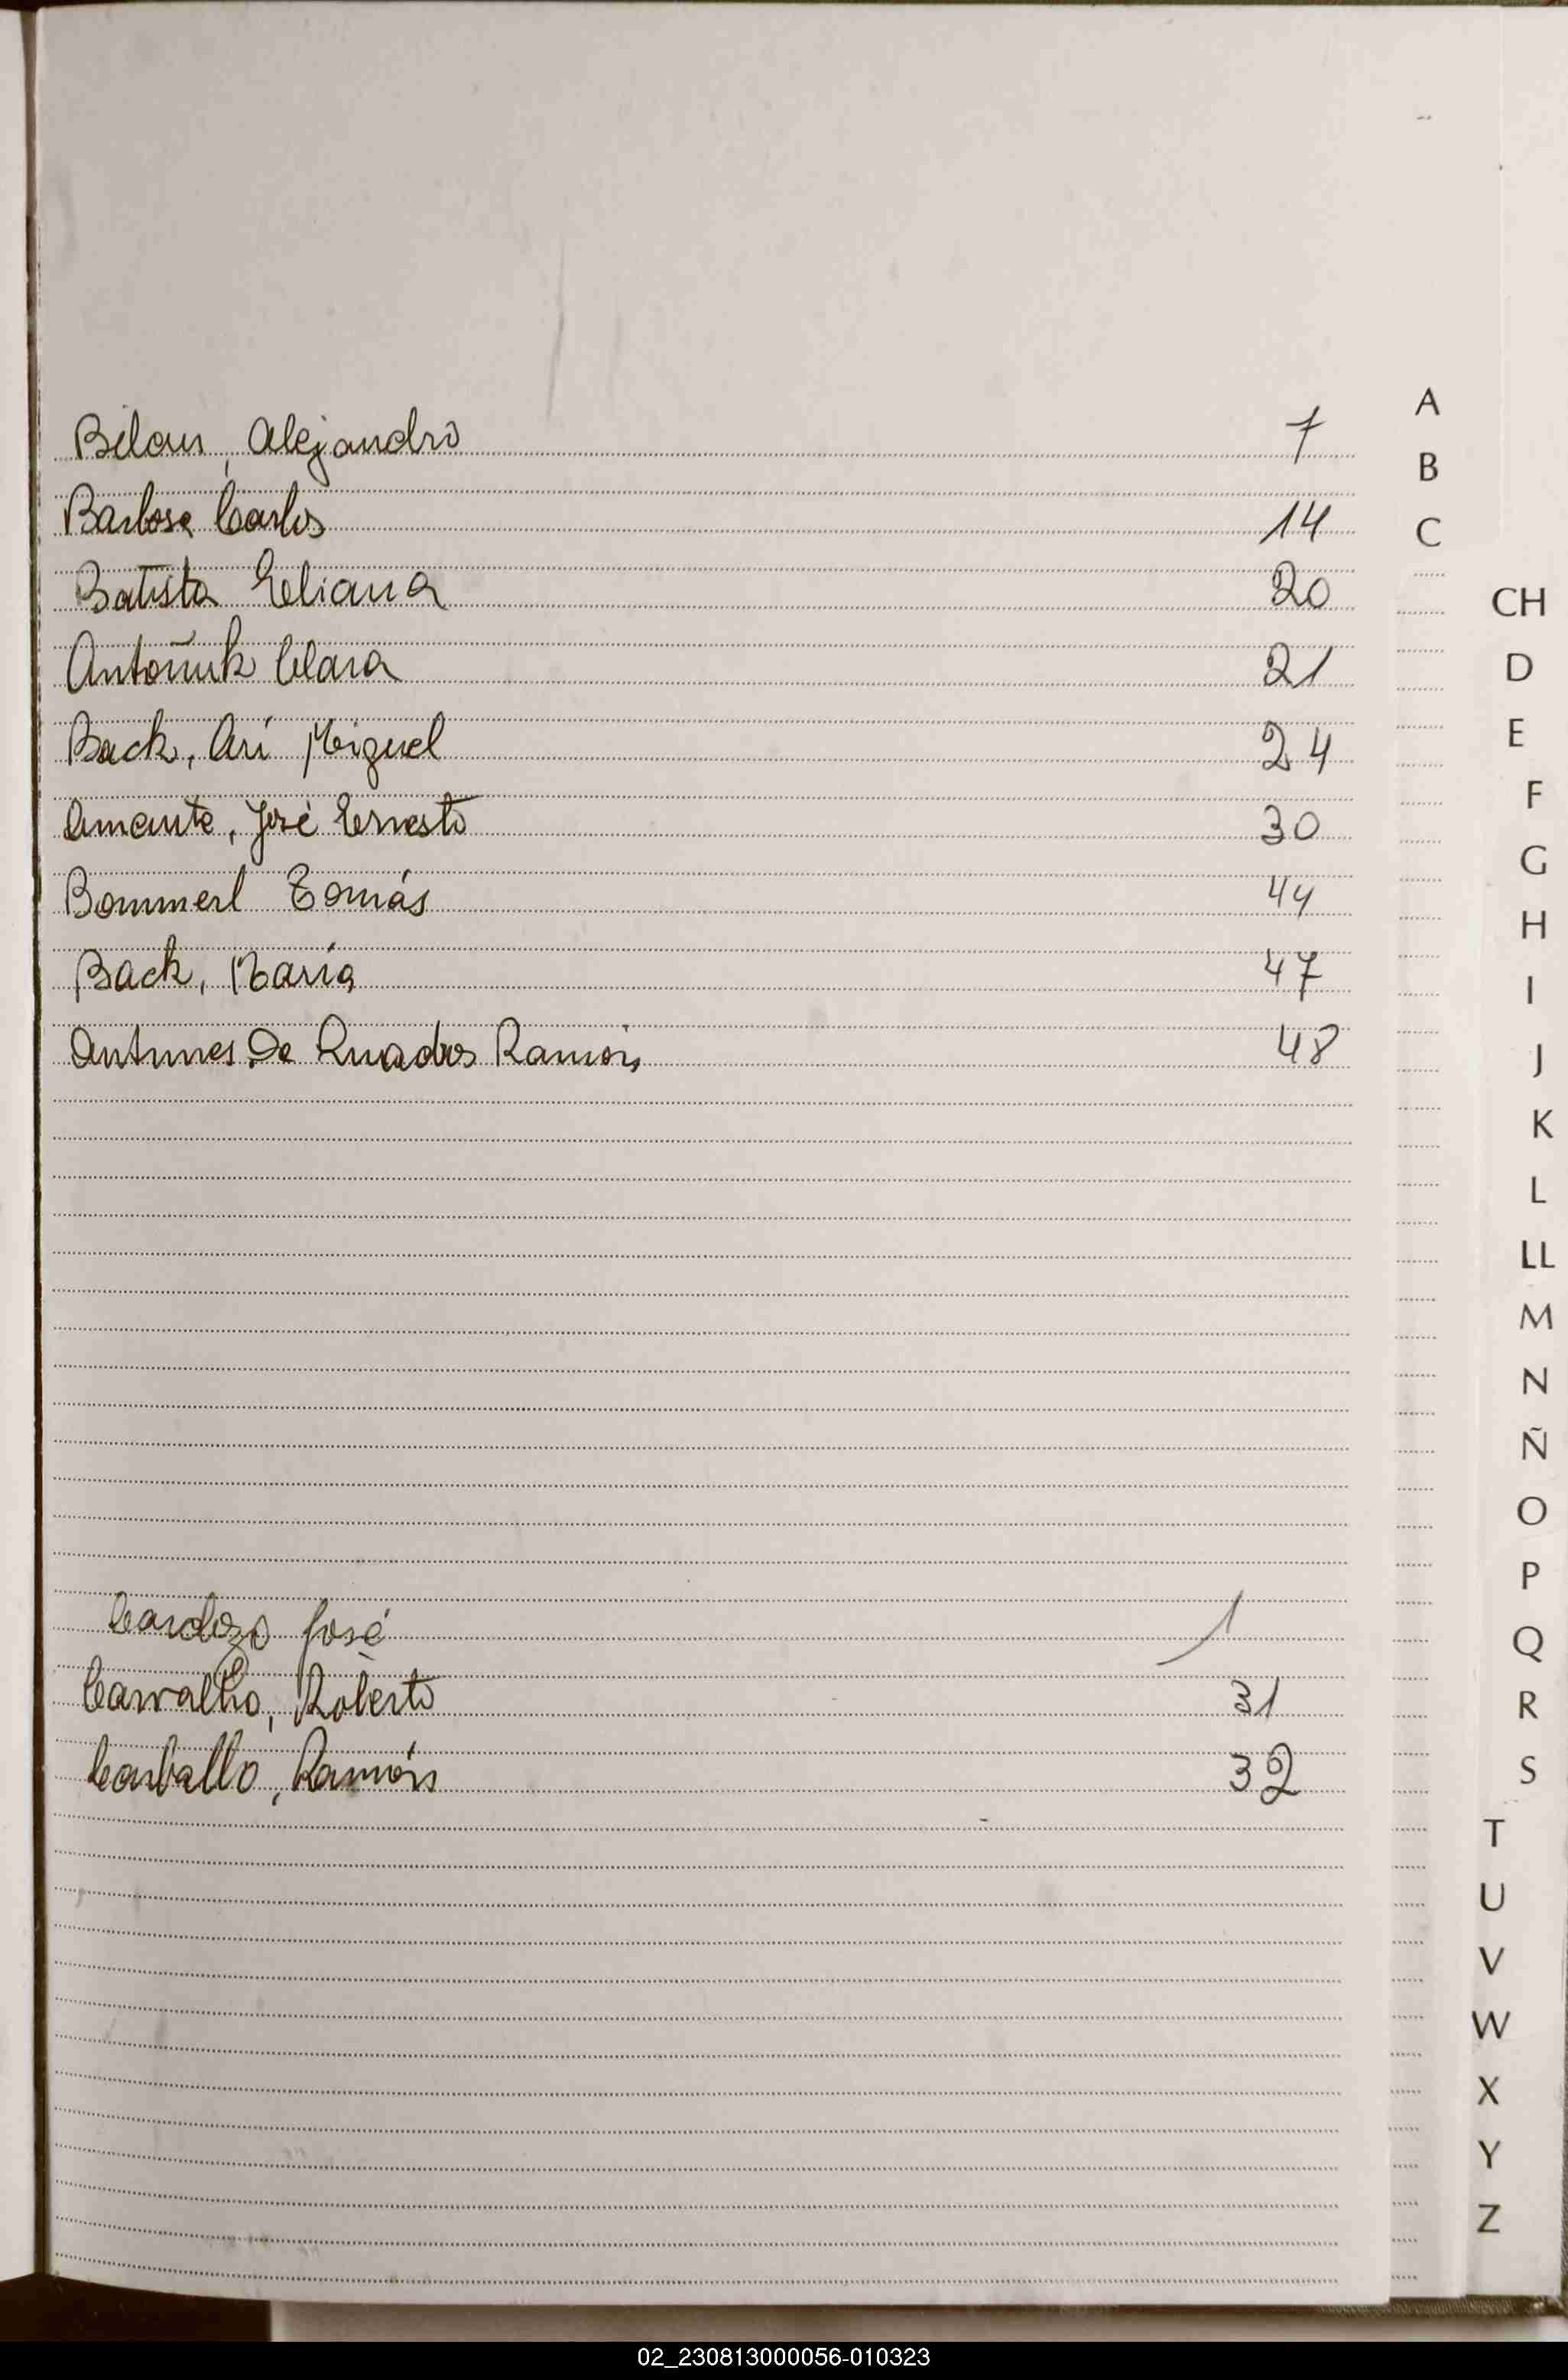 Bilaus, Alejandro 7
Barbosa Carlos 14
Batista Eliana 20
Antoñuk Clara 21
Back, Ari Miguel 24
Amante, José Ernesto 30
Bommerl Tomás 44
Back, María 47
Antunes De Quadros Ramón 48
Cardozo José 1
Carvalho, Roberto 31
Carballo, Ramón 32
A
B
C
CH
D
E
F
G
H
I
J
K
L
LL
M
N
Ñ
O
P
Q
R
S
T
U
V
W
X
Y
Z
02_230813000056-010323